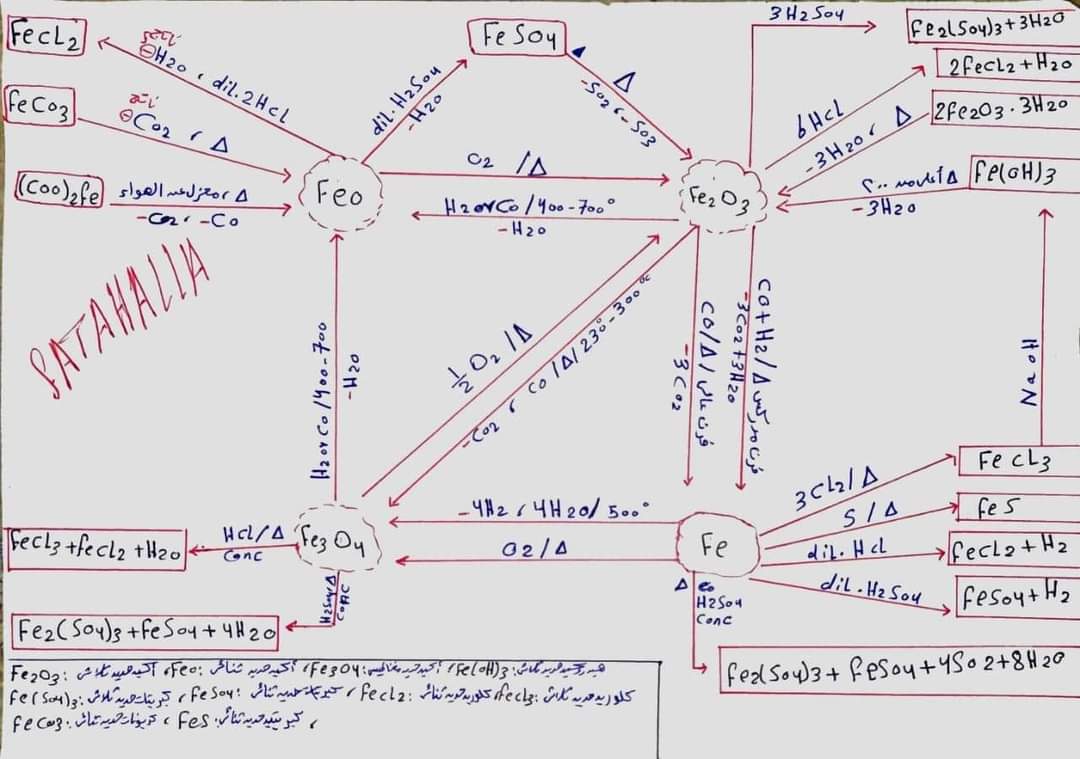 FeCL2
ناتج
⊖H2O ، dil. 2Hcl
FeSO4
dil. H2SO4
-H2O
Δ
-SO2 ، -SO3
3H2SO4
Fe2(SO4)3+3H2O
2FeCL2+H2O
6Hcl
FeCO3
ناتج
⊖CO2 ، Δ
2Fe2O3.3H2O
-3H2O ، Δ
(COO)2Fe
بمعزل عن الهواء ، Δ
-CO2 ، -CO
FeO
O2 /Δ
H2 or CO/400-700°
-H2O
Fe2O3
Fe(OH)3
Δ أعلى من ٢٠٠
-3H2O
FATAHALLA
H2 or CO/400-700
-H2O
½O2 /Δ
-CO2 ، CO /Δ/ 230-300°C
CO/Δ/ فرن عالى
-3CO2
CO+H2/Δ فرن مدركس
-3CO2+3H2O
NaOH
FeCL3
3CL2/Δ
FeS
S/Δ
FeCL2+H2
dil. Hcl
FeSO4+H2
dil. H2SO4
Fe
-4H2 ، 4H2O/500°
O2/Δ
Fe3O4
HCl/Δ
Conc
FeCL3+FeCL2+H2O
H2SO4/Δ
Conc
Fe2(SO4)3+FeSO4+4H2O
Δ
H2SO4
Conc
Fe2(SO4)3+FeSO4+4SO2+8H2O
Fe2O3: أكسيد حديد ثلاثى ، FeO: أكسيد حديد ثنائى ، Fe3O4: أكسيد حديد مغناطيسى ، Fe(OH)3: هيدروكسيد حديد ثلاثى
Fe(SO4)3: كبريتات حديد ثلاثى ، FeSO4: كبريتات حديد ثنائى ، FeCL2: كلوريد حديد ثنائى ، FeCL3: كلوريد حديد ثلاثى
FeCO3: كربونات حديد ثنائى ، FeS: كبريتيد حديد ثنائى ،